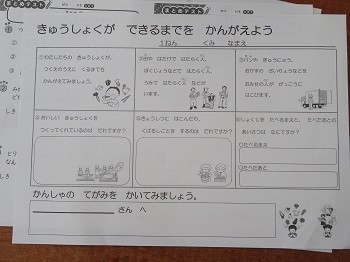 きゅうしょくが できるまでを かんがえよう
1ねん くみ なまえ
①わたしたちの きゅうしょくが、
つくえのうえに くるまでを
かんがえてみましょう。
はたけで はたらく人、
ぼくじょうなどで はたらく人、
うみで はたらく人 などが
います。
おみせの人が がっこうに
はこびます。
④おいしい きゅうしょくを
つくってくれているのは だれですか？
⑤きゅうしょくを はこんだり、
くばるしごとを するのは だれですか？
⑥しょくを たべるまえと、たべたあとの
あいさつは なにですか？
○たべるまえ
○たべたあと
かんしゃの てがみを かいてみましょう。
さん へ